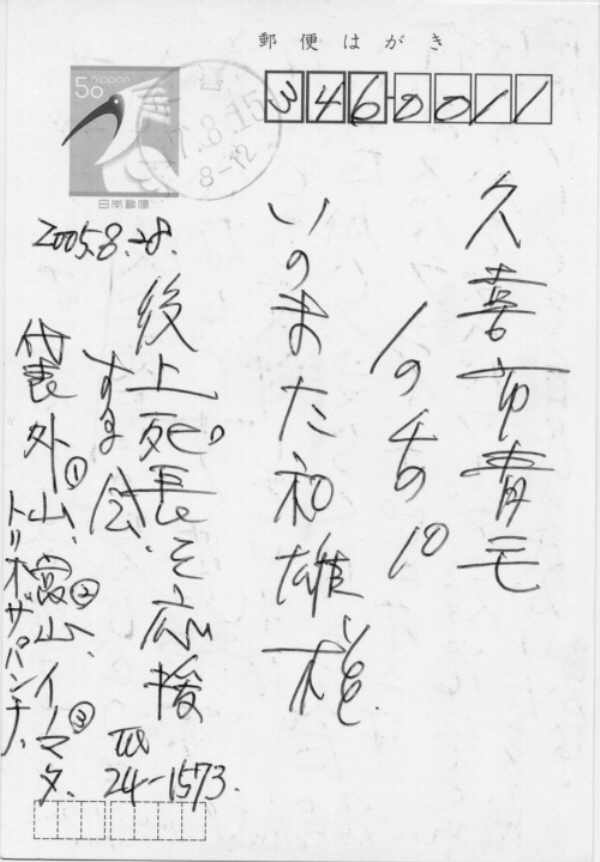 郵便はがき
50 NIPPON
日本郵便
7.8.15
8-12
346-0011
久喜市青毛
1の4の10
いのまた和雄様
2005.8.28.
後上死長を応援
する会、
代表外山、富山、イーマタ、
① ② ③
トリオザパンチ、
TEL
24-1573.